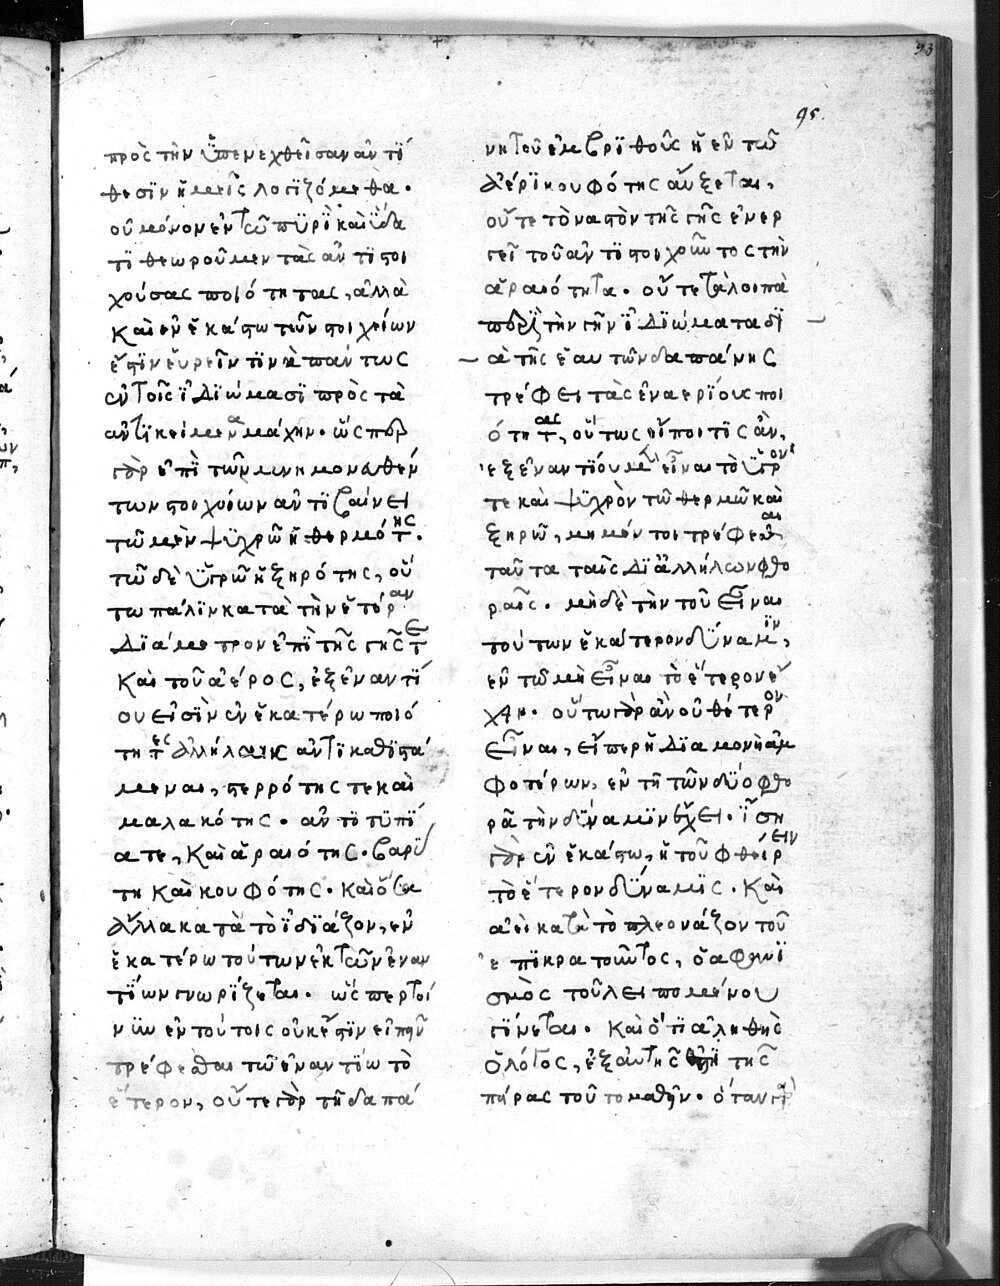 93
95.
πρὸς τὴν ὑπενεχθεῖσαν ἀντί
θεσιν ἡμεῖς λογιζόμεθα·
οὐ μόνον ἐν τῶ πυρὶ καὶ ὕδα
τι θεωροῦμεν τὰς ἀντιστοι
χούσας ποιότητας, ἀλλὰ
καὶ ἐν ἑκάστω τῶν στοιχείων
ἔστιν εὑρεῖν τινὰ πάντως
ἐν τοῖς ἰδιώμασι πρὸς τὰ
ἀντικείμενα μάχην· ὥσπερ
γὰρ ἐπὶ τῶν μνημονευθέν
των στοιχείων ἀντιβαίνει
τῶ μὲν ψυχρῶ ἡ θερμότης·
τῶ δὲ ὑγρῶ ἡ ξηρότης, οὕ
τω πάλιν κατὰ τὴν ἑτέραν
διάμετρον ἐπὶ τῆς γῆς τε
καὶ τοῦ ἀέρος, ἐξ ἐναντί
ου εἰσὶν ἐν ἑκατέρω ποιό
τητες ἀλλήλαις ἀντικαθιστά
μεναι, στερρότης τε καὶ
μαλακότης· ἀντιτυπί
α τε, καὶ ἀραιότης· βαρύ
τη καὶ κουφότης· καὶ ὅσα
ἄλλα κατὰ τὸ ἰδιάζον, ἐν
ἑκατέρω τούτων ἐκ τῶν ἐναν
τίων γνωρίζεται· ὥσπερ τοί
νυν ἐν τούτοις οὐκ ἔστιν εἰπεῖν
τρέφεσθαι τῶ ἐναντίω τὸ
ἕτερον, οὔτε γὰρ τῆ δαπά
νη τοῦ ἐμβριθοῦς ἡ ἐν τῶ
ἀέρι κουφότης αὔξεται,
οὔτε τὸ ναστὸν τῆς γῆς ἐνερ
γεῖ τοῦ ἀντιστοιχοῦντος τὴν
ἀραιότητα· οὔτε τὰ λοιπὰ
περὶ τὴν γῆν ἰδιώματα δι
ὰ τῆς ἑαυτῶν δαπάνης
τρέφει τὰς ἐναερίους ποι
ότητας, οὕτως εἴποι τις ἂν,
ἐξ ἐναντίου μὲν εἶναι τὸ ὑγρόν
τε καὶ ψυχρὸν τῶ θερμῶ καὶ
ξηρῶ, μὴ μέν τοι τρέφεσθαι
ταῦτα ταῖς δι ἀλλήλων φθο
ραῖς· μηδὲ τὴν τοῦ εἶναι
τούτων ἑκάτερον δύναμιν,
ἐν τῶ μὴ εἶναι τὸ ἕτερον ἔ
χειν· οὕτω γὰρ ἂν οὐθέτερον
εἶναι, εἴπερ ἡ διαμονὴ ἀμ
φοτέρων, ἐν τῆ τῶν δύο φθο
ρᾶ τὴν δύναμιν ἔχει· ἴση
γὰρ ἐν ἑκάστω, ἡ τοῦ φθείρειν
τὸ ἕτερον δύναμις· καὶ
ἀεὶ κατὰ τὸ πλεονάζον τοῦ
ἐπικρατοῦντος, ὁ ἀφανι
σμὸς τοῦ λειπομένου
γίνεται· καὶ ὅτι ἀληθὴς
ὁ λόγος, ἐξ αὐτῆς τῆς
πείρας τοῦτο μαθεῖν· ὅταν γὰρ